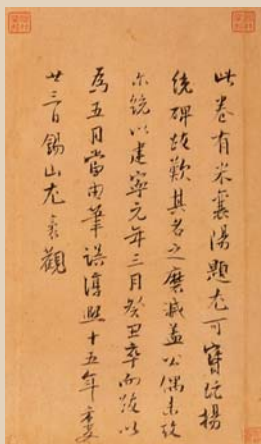 此卷有米襄陽題尤可寶玩揚
統碑跋歎其名之磨滅蓋公偶未攷
尔統以建寧元年三月癸丑卒而跋以
為五月當由筆誤淳熙十五年
廿三日錫山尤袤觀